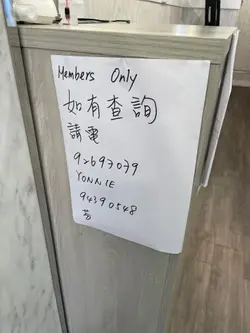 Members Only
如有查詢
請電
92697079
YONNIE
94390548